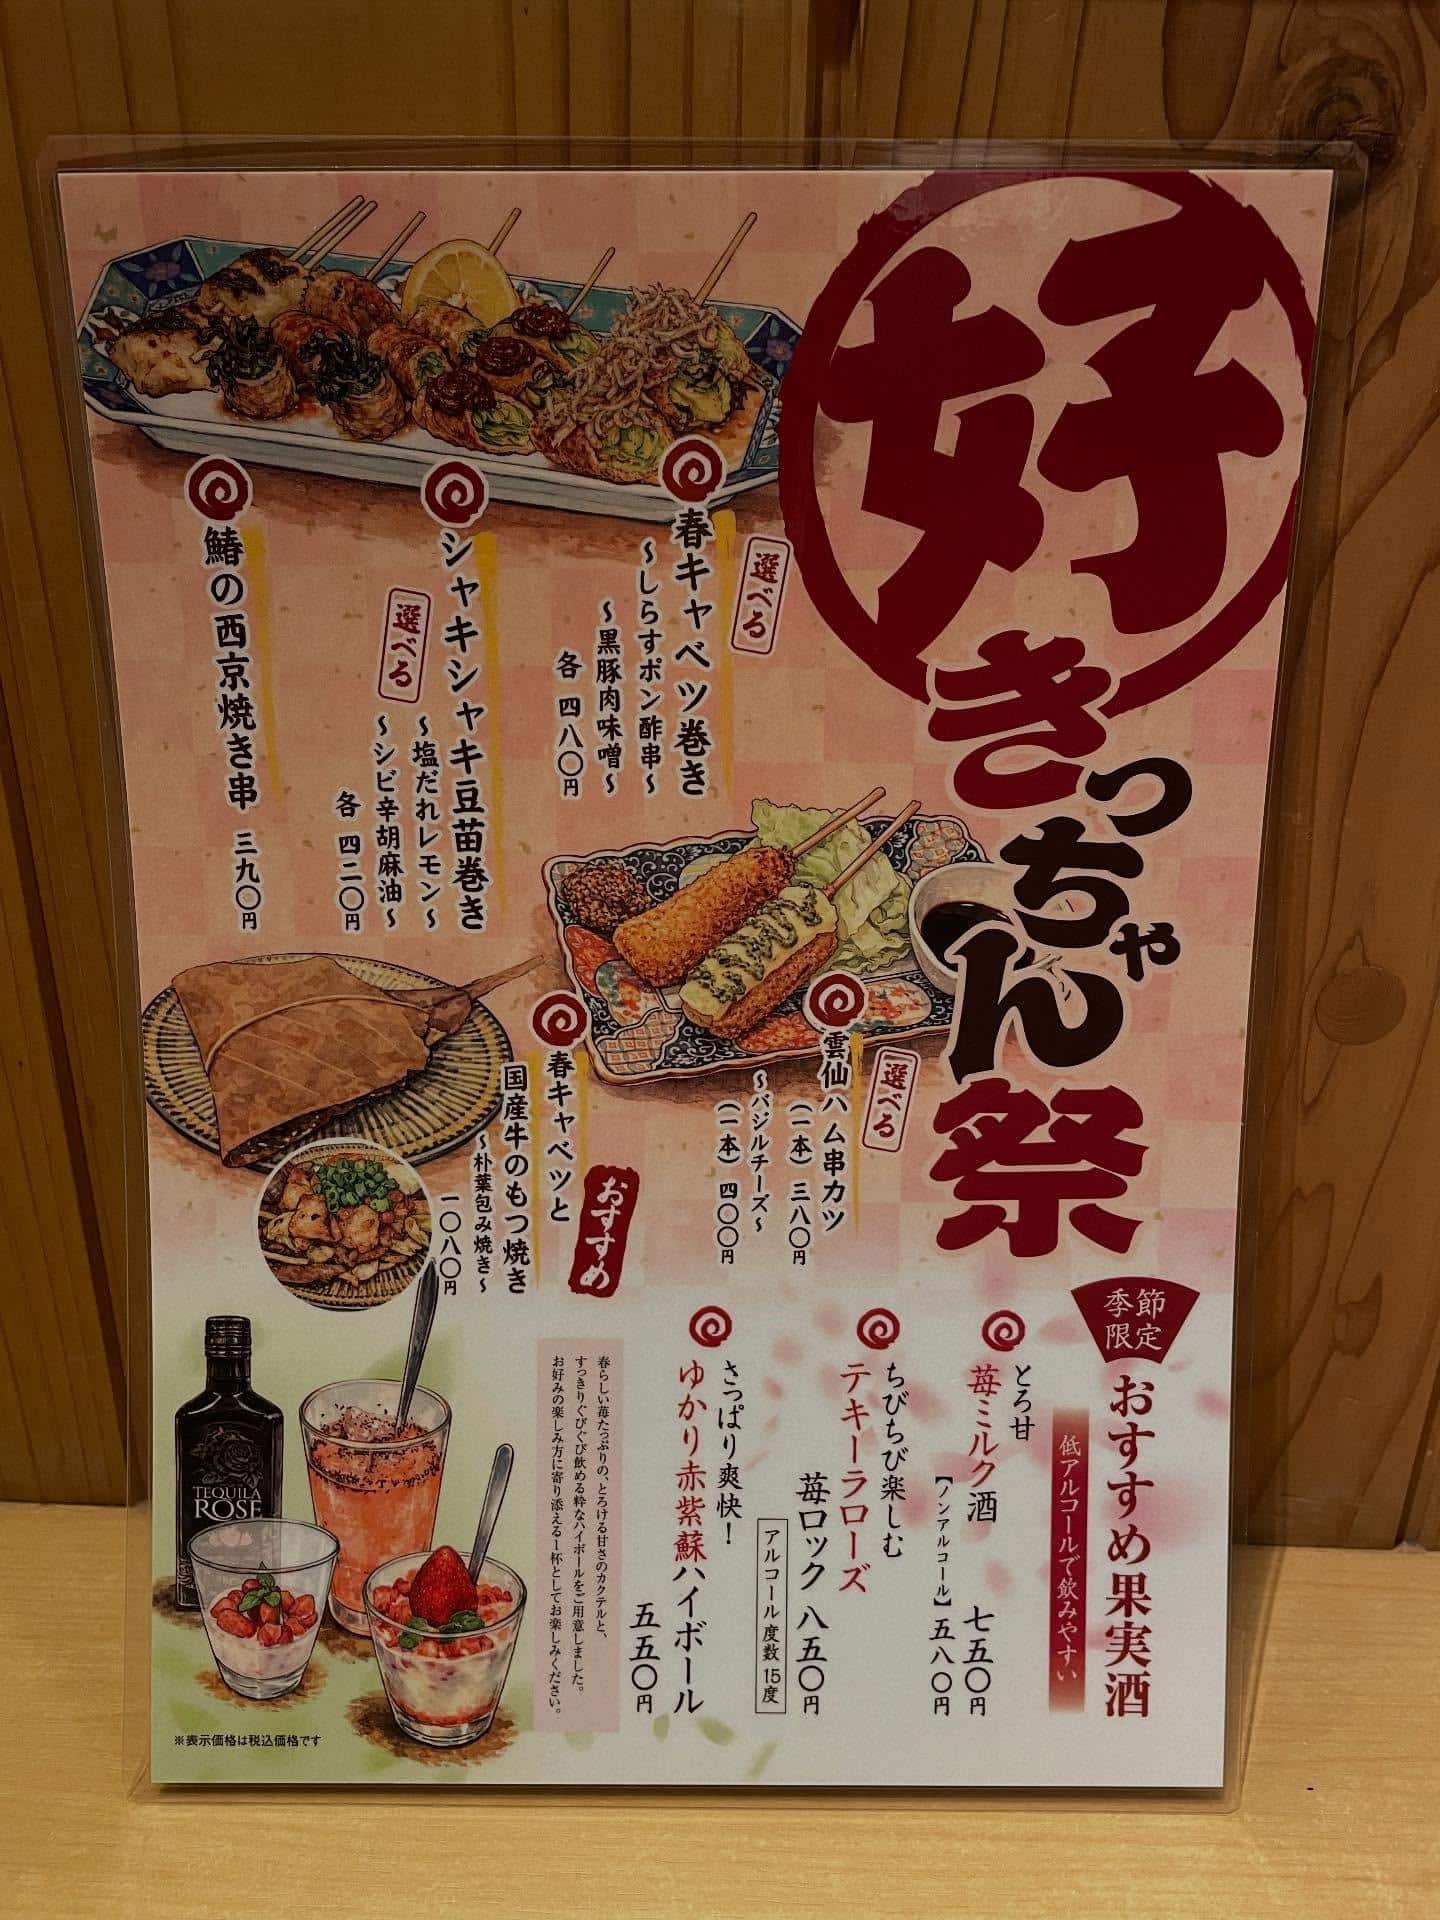 好きっちゃん祭
選べる
春キャベツ巻き
～しらすポン酢串～
～黒豚肉味噌～
各 四八〇円
シャキシャキ豆苗巻き
選べる
～塩だれレモン～
～シビ辛胡麻油～
各 四二〇円
鰆の西京焼き串 三九〇円
選べる
雲仙ハム串カツ
（一本）三八〇円
～バジルチーズ～
（一本）四〇〇円
おすすめ
春キャベツと
国産牛のもつ焼き
～朴葉包み焼き～
一〇八〇円
季節
限定
おすすめ果実酒
低アルコールで飲みやすい
とろ甘
苺ミルク酒 七五〇円
【ノンアルコール】五八〇円
ちびちび楽しむ
テキーラローズ
苺ロック 八五〇円
アルコール度数 15度
さっぱり爽快！
ゆかり赤紫蘇ハイボール
五五〇円
春らしい苺たっぷりの、とろける甘さのカクテルと、
すっきりぐびぐび飲める粋なハイボールをご用意しました。
お好みの楽しみ方に寄り添える一杯としてお楽しみください。
TEQUILA
ROSE
※表示価格は税込価格です